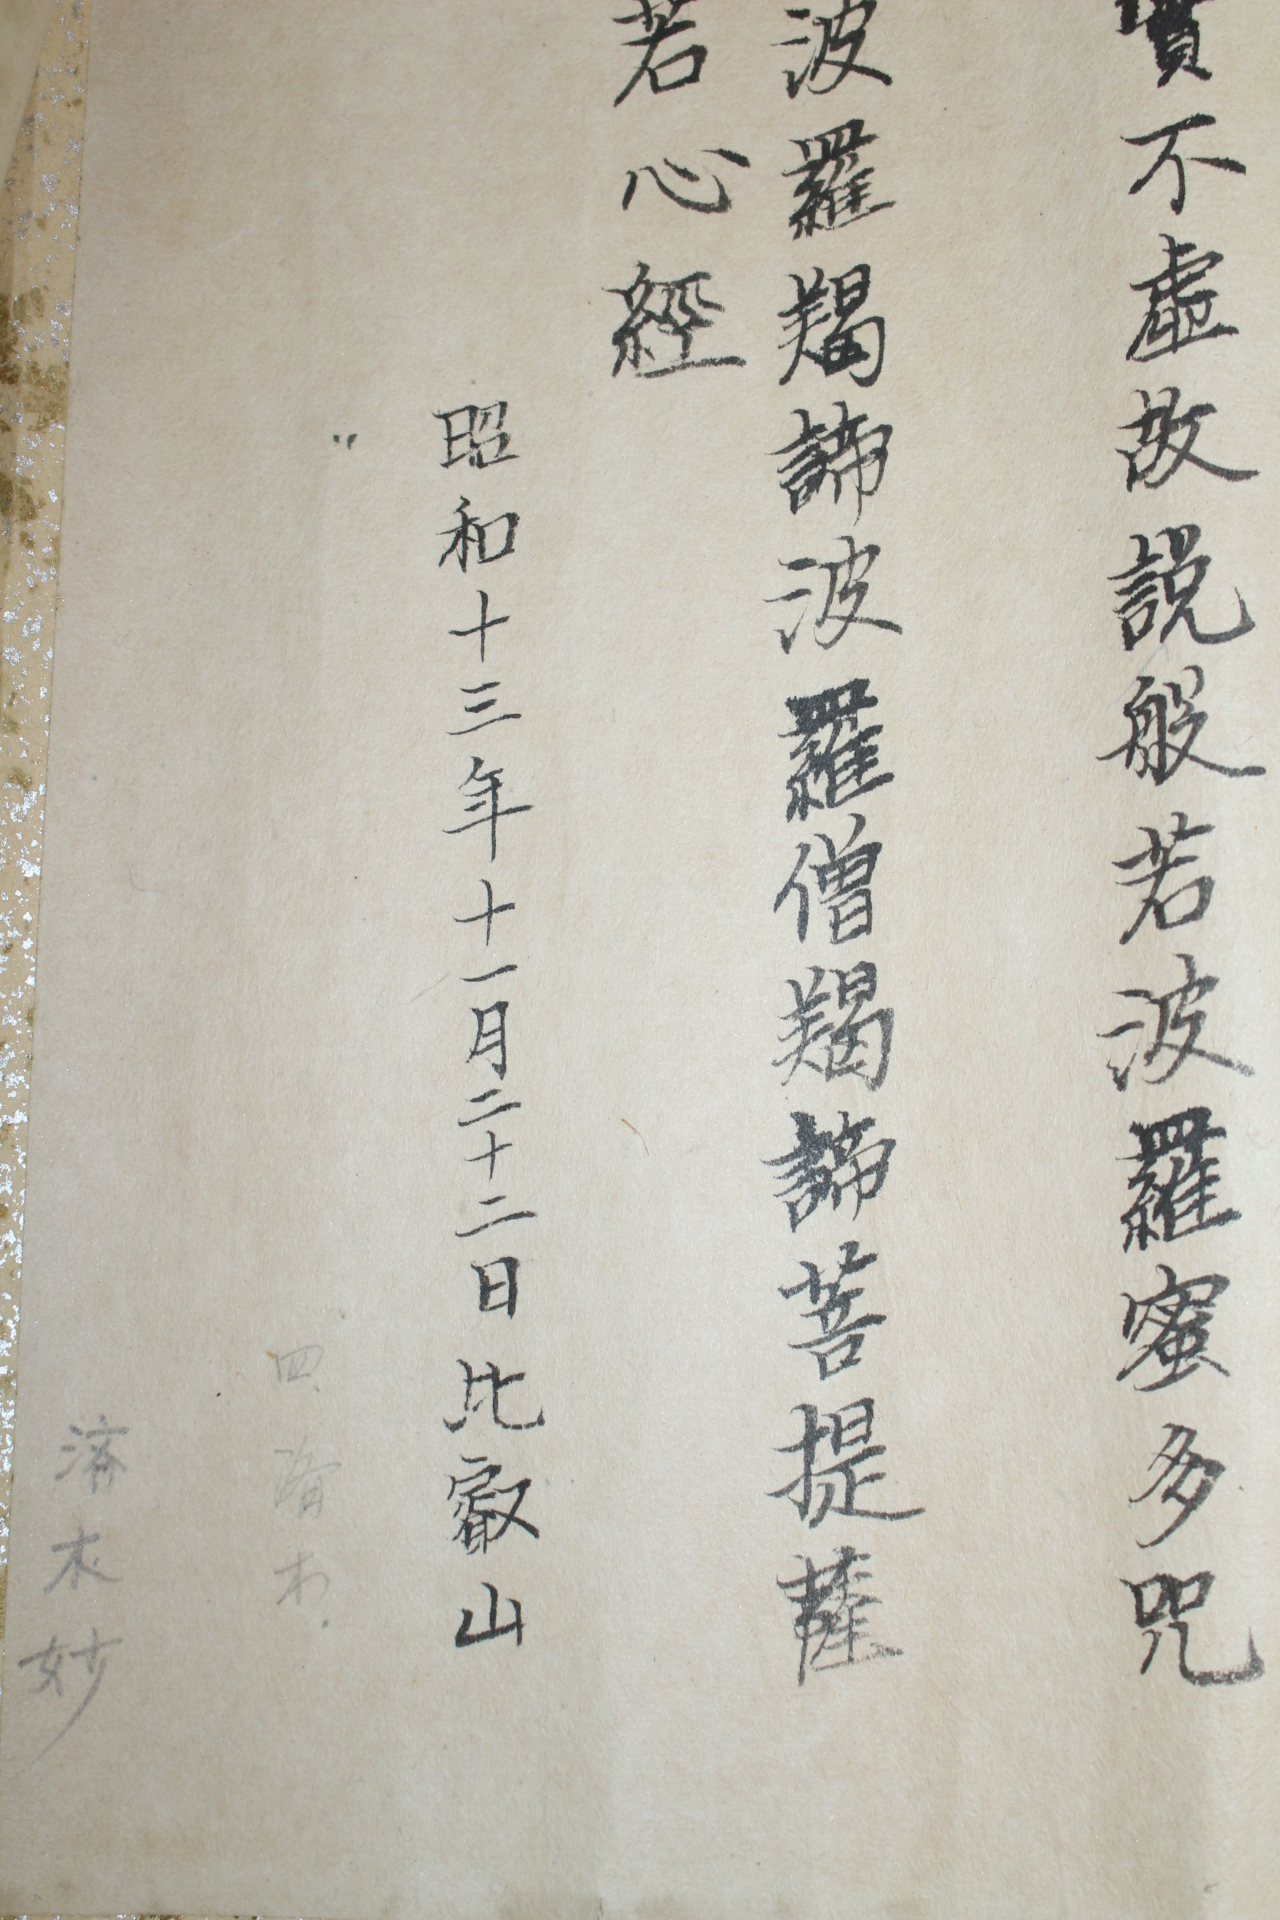 實不虛故説般若波羅蜜多咒
波羅羯諦波羅僧羯諦菩提薩
若心經
昭和十三年十一月二十二日比叡山
四
済木妙